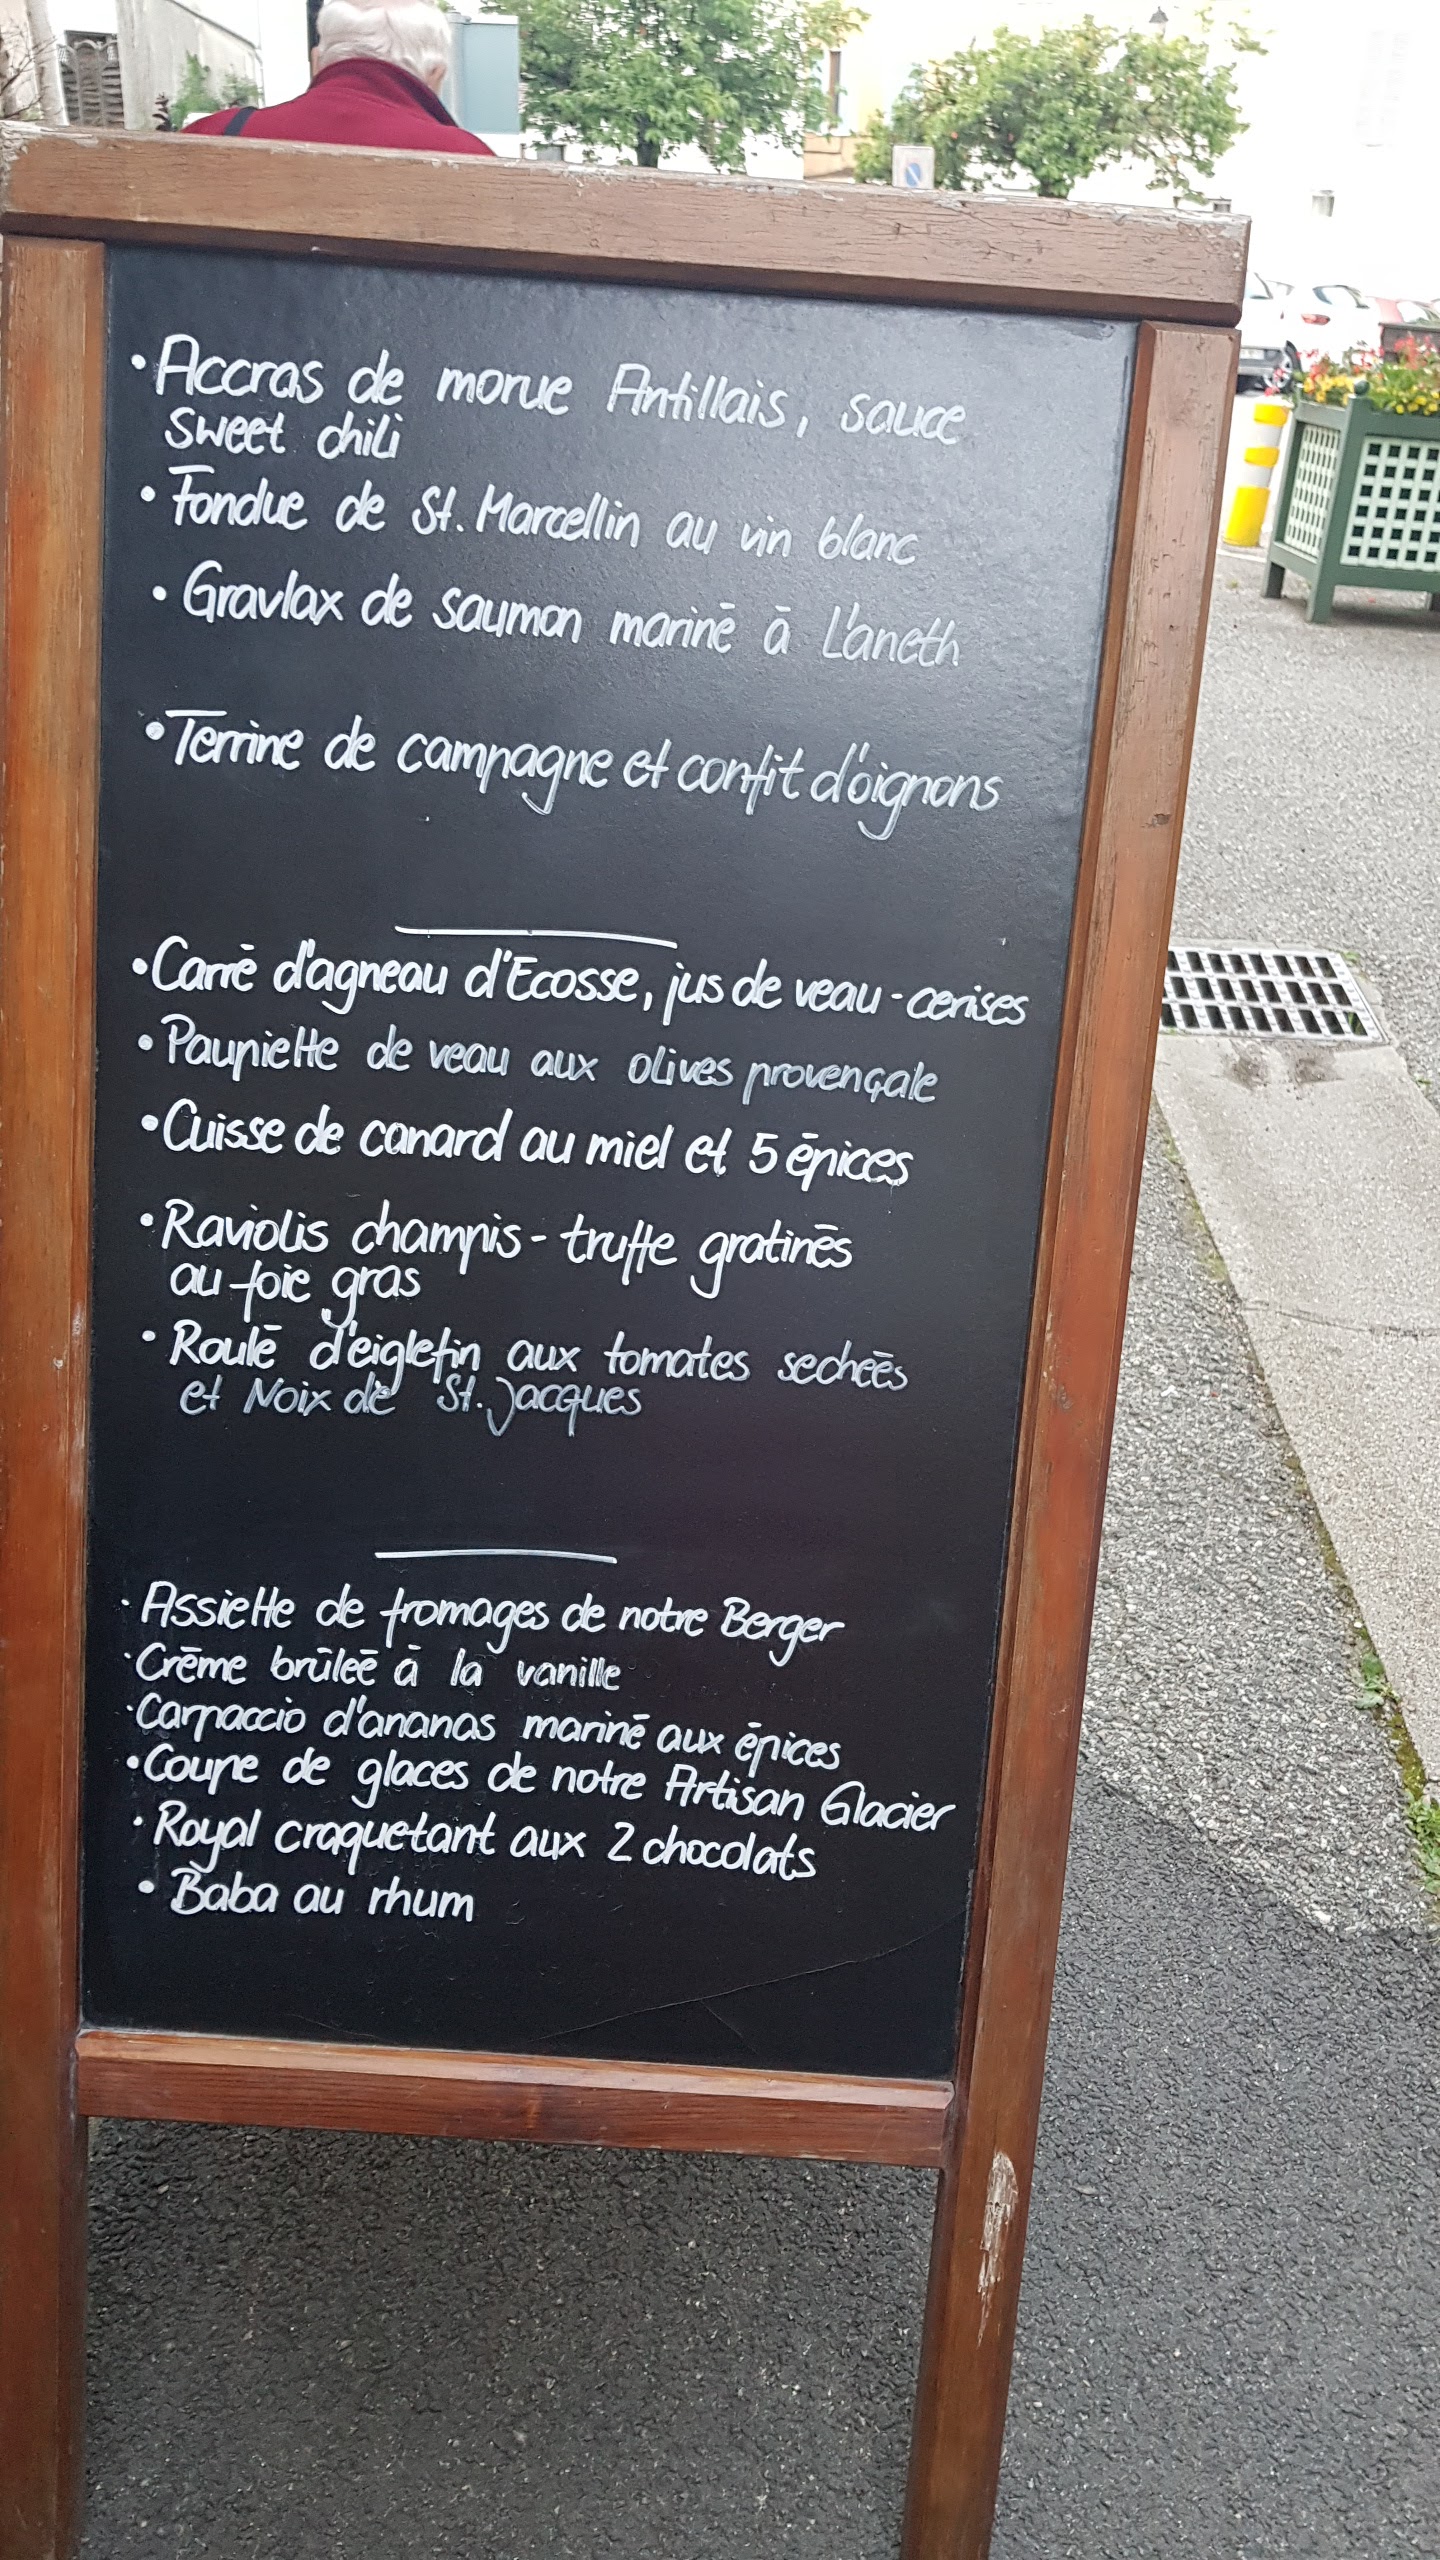 • Accras de morue Antillais, sauce
sweet chili
• Fondue de St. Marcellin au vin blanc
• Gravlax de saumon mariné à L'aneth
• Terrine de campagne et confit d'oignons
• Carré d'agneau d'Ecosse, jus de veau - cerises
• Paupiette de veau aux olives provençale
• Cuisse de canard au miel et 5 épices
• Raviolis champis - truffe gratinés
au foie gras
• Roulé d'eiglefin aux tomates secheés
et Noix de St. Jacques
• Assiette de fromages de notre Berger
• Crème brûleé à la vanille
• Carpaccio d'ananas mariné aux épices
• Coupe de glaces de notre Artisan Glacier
• Royal craquetant aux 2 chocolats
• Baba au rhum